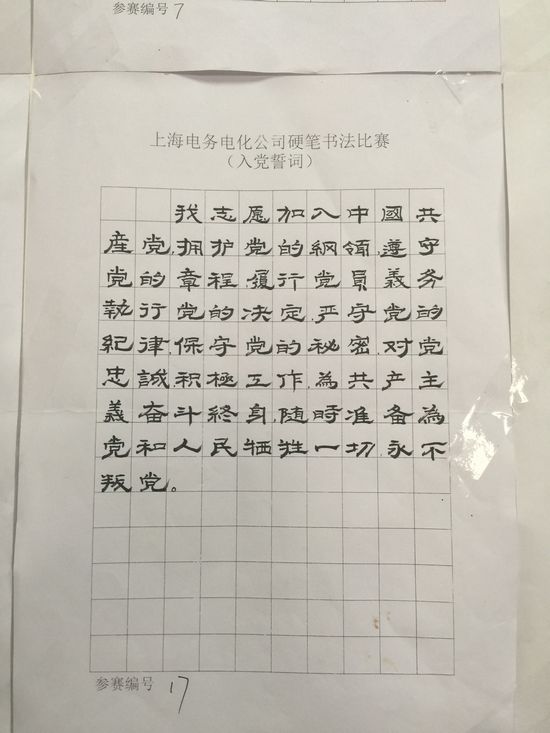 参赛编号 7
上海电务电化公司硬笔书法比赛
（入党誓词）
我志愿加入中國共
産党,拥护党的綱領,遵守
党的章程,履行党員義务
執行党的决定,严守党的
紀律,保守党的秘密,对党
忠誠,积極工作,為共产主
義奋斗終身,随時准备為
党和人民牺牲一切,永不
叛党。
参赛编号 17